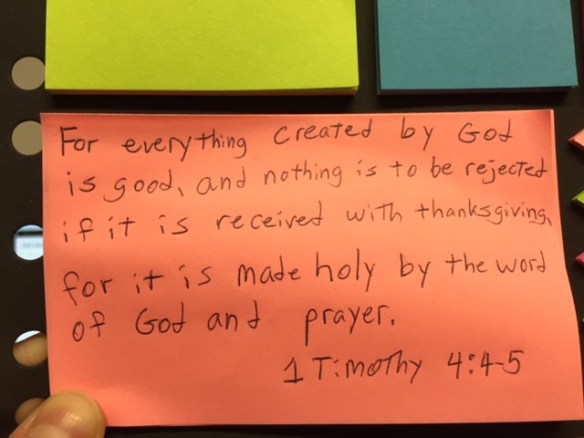 For everything created by God
is good, and nothing is to be rejected
if it is received with thanksgiving,
for it is made holy by the word
of God and prayer.
1 Timothy 4:4-5